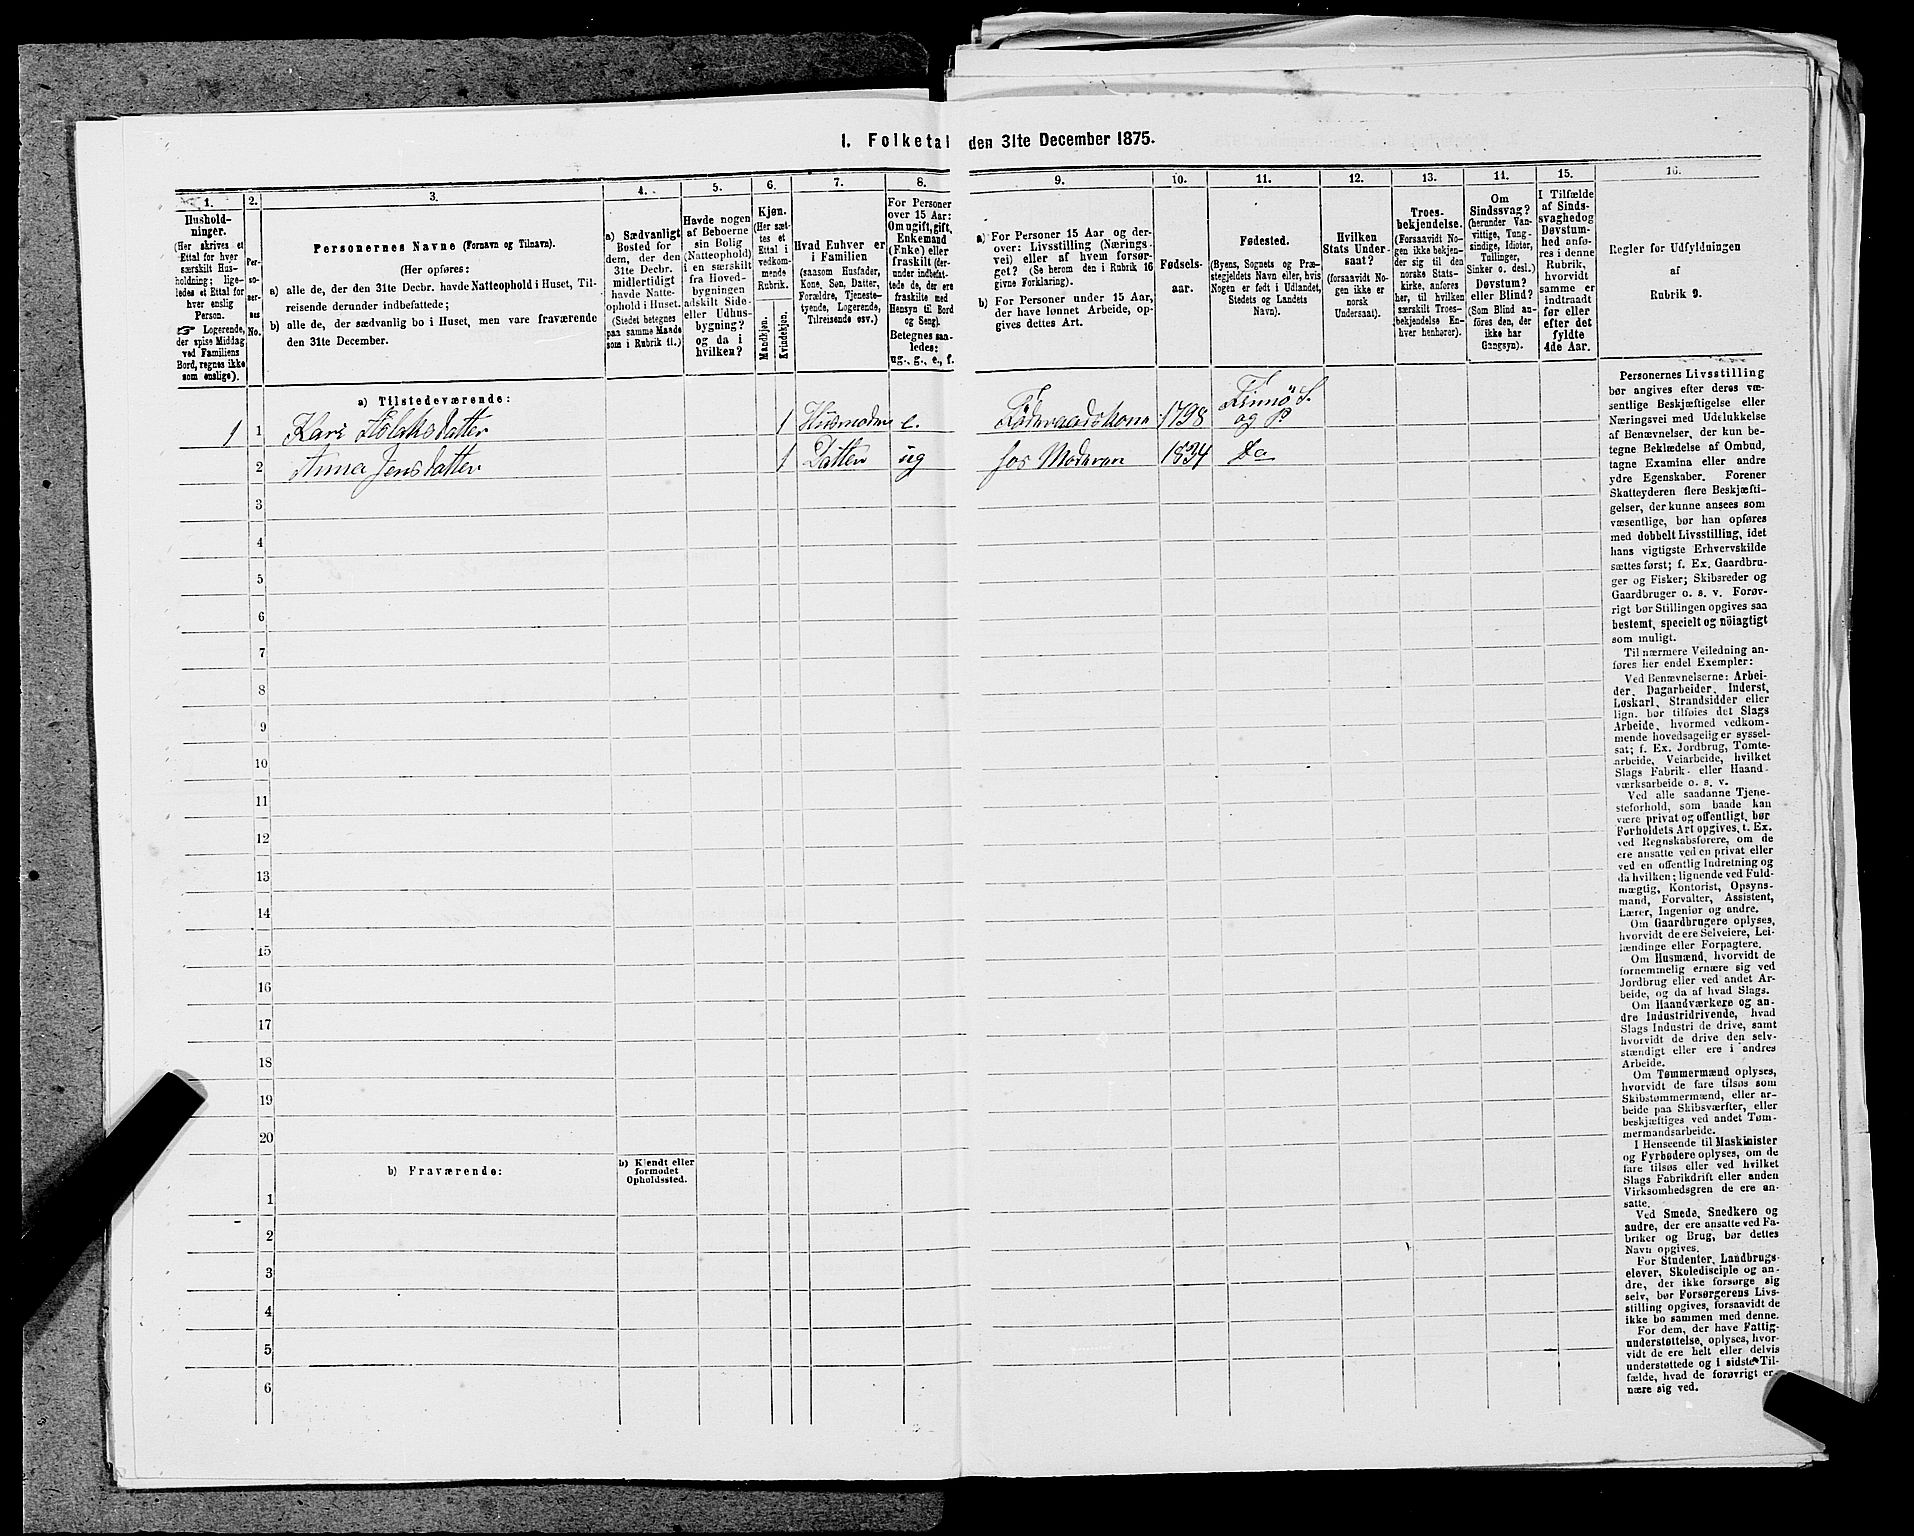 1. Folketal den 31te December 1875.
1.
Hushold-
ninger.
(Her skrives et
Ettal for hver
særskilt Hus-
holdning; lige-
ledes et Ettal for
hver enslig
Person.
☞ Logerende,
der spise Middag
ved Familiens
Bord, regnes ikke
som enslige).
2.
Per-
so-
ner-
nes
No.
3.
Personernes Navne (Fornavn og Tilnavn).
(Her opføres:
a) alle de, der den 31te Decbr. havde Natteophold i Huset, Til-
reisende derunder indbefattede;
b) alle de, der sædvanlig bo i Huset, men vare fraværende
den 31te December.
4.
a) Sædvanligt
Bosted for
dem, der den
31te Decbr.
midlertidigt
havde Natte-
ophold i Huset.
(Stedet betegnes
paa samme Maade
som i Rubrik 11.)
5.
Havde nogen
af Beboerne
sin Bolig
(Natteophold)
i en særskilt
fra Hoved-
bygningen
adskilt Side-
eller Udhus-
bygning?
og da i
hvilken?
6.
Kjøn.
(Her sæt-
tes et
Ettal i
vedkom-
mende
Rubrik.
Mandkjøn.
Kvindekjøn.
7.
Hvad Enhver er
i Familien
(saasom Husfader,
Kone, Søn, Datter,
Forældre, Tjeneste-
tyende, Logerende,
Tilreisende osv.)
8.
For Personer
over 15 Aar:
Om ugift, gift,
Enkemand
(Enke) eller
fraskilt (der-
under indbefat-
tede de, der ere
fraskilte med
Hensyn til Bord
og Seng).
Betegnes saa-
ledes:
ug., g., e., f.
9.
a) For Personer 15 Aar og der-
over: Livsstilling (Nærings-
vei) eller af hvem forsør-
get? (Se herom den i Rubrik 16
givne Forklaring).
b) For Personer under 15 Aar,
der have lønnet Arbeide, op-
gives dettes Art.
10.
Fødsels-
aar.
11.
Fødested.
(Byens, Sognets og Præ-
stegjeldets Navn eller, hvis
Nogen er født i Udlandet,
Stedets og Landets
Navn).
12.
Hvilken
Stats Under-
saat?
(forsaavidt No-
gen ikke er
norsk
Undersaat).
13.
Troes-
bekjendelse.
(Forsaavidt No-
gen ikke bekjen-
der sig til den
norske Stats-
kirke, anføres
her, til hvilken
særskilt Troes-
bekjendelse En-
hver henhører).
14.
Om
Sindssvag?
(herunder Van-
vittige, Tung-
sindige, Idioter,
Tullinger,
Sinker o. desl.)
Døvstum?
eller Blind?
(Som Blind an-
føres den, der
ikke har
Gangsyn).
15.
I Tilfælde
af Sinds-
svaghed og
Døvstum-
hed anfø-
res i denne
Rubrik,
hvorvidt
samme er
indtraadt
før eller
efter det
fyldte
4de Aar.
16.
Regler for Udfyldningen
af
Rubrik 9.
a) Tilstedeværende:
1 1 Kari Aslaksdatter 1 Husmoder e. Föderaadskone 1798 Finnö S. og P.
2 Anna Jensdatter 1 Datter ug hos Moderen 1834 Do
3
4
5
6
7
8
9
10
11
12
13
14
15
16
17
18
19
20
b) Fraværende:
b) Kjendt eller
formodet
Opholdssted.
1
2
3
4
5
6
Personernes Livsstilling
bør angives efter deres væ-
sentlige Beskjæftigelse eller
Næringsvei med Udelukkelse
af Benævnelser, der kun be-
tegne Beklædelse af Ombud,
tagne Examina eller andre
ydre Egenskaber. Forener
Skatteyderen flere Beskjæfti-
gelser, der kunne ansees som
væsentlige, bør han opføres
med dobbelt Livsstilling, idet
hans vigtigste Erhvervskilde
sættes først; f. Ex. Gaardbru-
ger og Fisker; Skibsreder og
Gaardbruger o. s. v. Forøv-
rigt bør Stillingen opgives saa
bestemt, specielt og nöiagtigt
som muligt.
Til nærmere Veiledning an-
føres her endel Exempler:
Ved Benævnelserne: Arbei-
der, Dagarbeider, Inderst,
Løskarl, Strandsidder eller
lign. bør tilføies det Slags
Arbeide, hvormed vedkom-
mende hovedsagelig er syssel-
sat; f. Ex. Jordbrug, Tomte-
arbeide, Veiarbeide, hvilket
Slags Fabrik- eller Haand-
værksarbeide o. s. v.
Ved alle saadanne Tjene-
steforhold, som baade kan
være privat og offentligt, bør
Forholdets Art opgives, t. Ex.
ved Regnskabsførere, om de
ere ansatte ved en privat eller
ved en offentlig Indretning og
da hvilken; lignende ved Fuld-
mægtig, Kontorist, Opsyns-
mand, Forvalter, Assistent,
Lærer, Ingeniør og andre.
Om Gaardbrugere oplyses,
hvorvidt de ere Selveiere, Lei-
lændinge eller Forpagtere.
Om Husmænd, hvorvidt de
fornemmelig ernære sig ved
Jordbrug eller ved andet Ar-
beide, og da af hvad Slags.
Om Haandværkere og an-
dre Industridrivende, hvad
Slags Industri de drive, samt
hvorvidt de drive den selv-
stændigt eller ere i andres
Arbeide.
Om Tømmermænd oplyses,
hvorvidt de fare tilsøs som
Skibstømmermænd, eller ar-
beide paa Skibsværfter, eller
beskjæftiges ved andet Tøm-
mermandsarbeide.
I Henseende til Maskinister
og Fyrbødere oplyses, om de
fare tilsøs eller ved hvilket
Slags Fabrikdrift eller anden
Virksomhedsgren de ere an-
satte.
Ved Smede, Snedkere og
andre, der ere ansatte ved Fa-
briker og Brug, bør dettes
Navn opgives.
For Studenter, Landbrugs-
elever, Skoledisciple og an-
dre, der ikke forsørge sig
selv, bør Forsørgerens Livs-
stilling opgives, forsaavidt de
ikke bo sammen med denne.
For dem, der have Fattig-
understøttelse, oplyses, hvor-
vidt de ere helt eller delvis
understøttede og i sidste Til-
fælde, hvad de forøvrigt er-
nære sig ved.